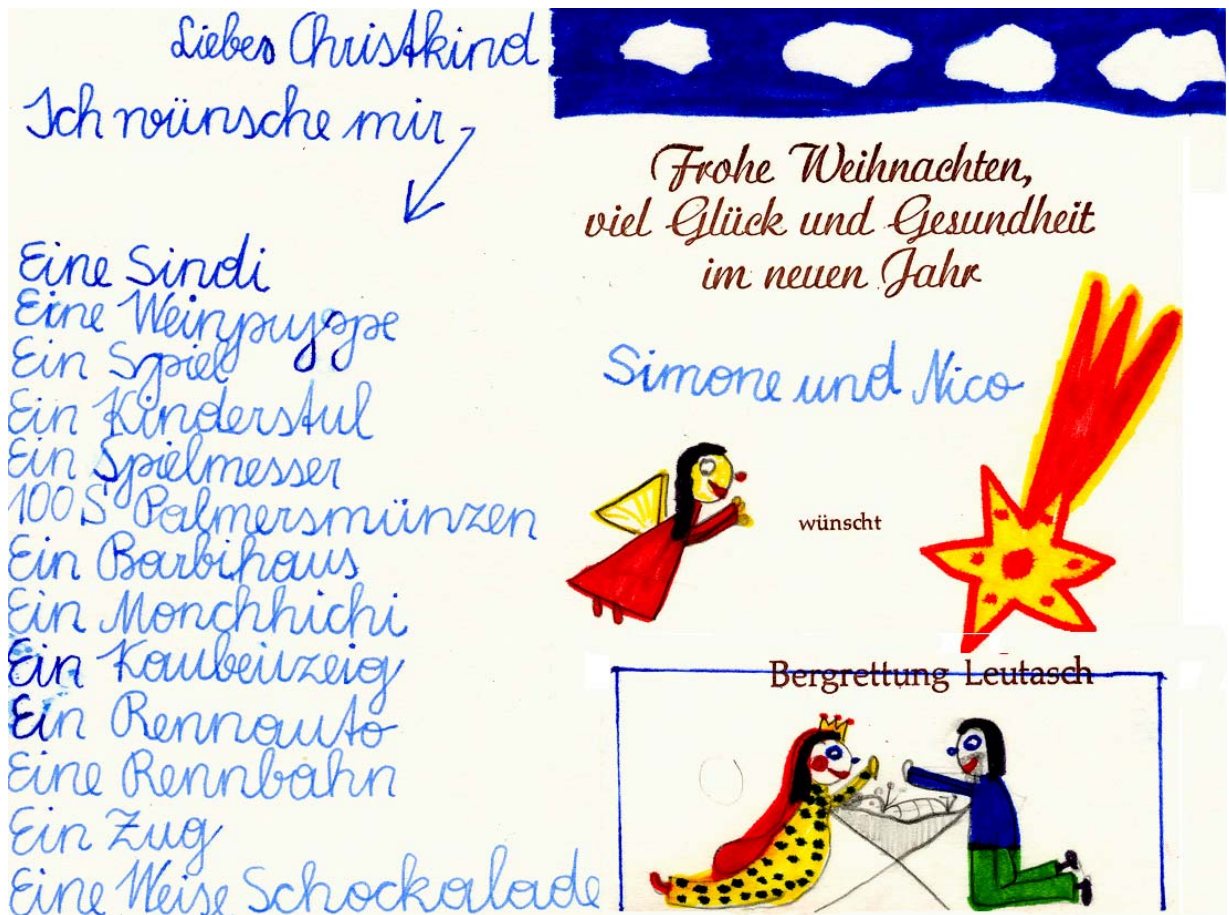 Liebes Christkind
Ich wünsche mir
Eine Sindi
Eine Weinpuppe
Ein Spiel
Ein Kinderstul
Ein Spielmesser
100 S Palmersmünzen
Ein Barbihaus
Ein Monchhichi
Ein Kaubeuzeig
Ein Rennauto
Eine Rennbahn
Ein Zug
Eine Weise Schockalade
Frohe Weihnachten,
viel Glück und Gesundheit
im neuen Jahr
Simone und Nico
wünscht
Bergrettung Leutasch